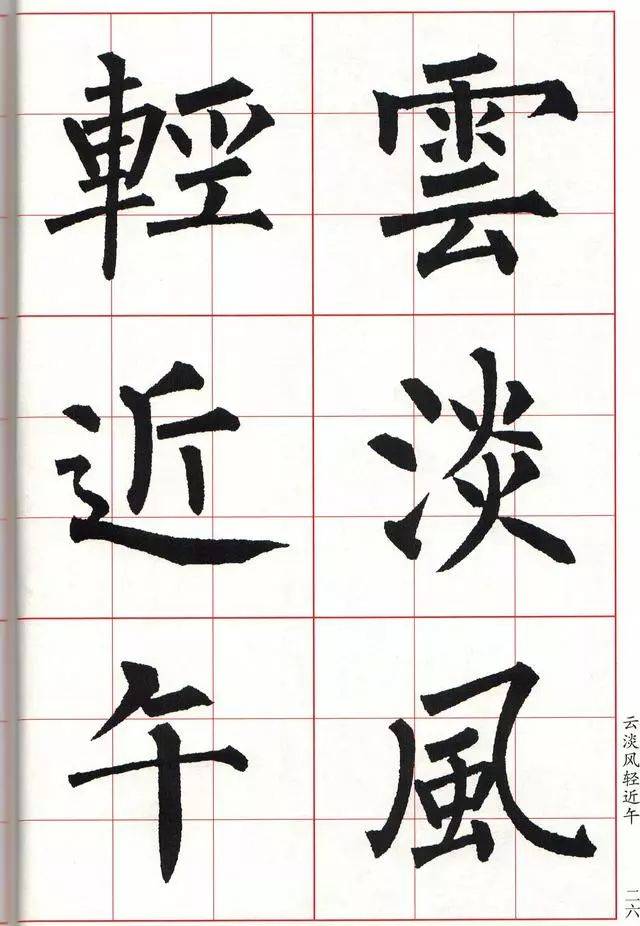 雲淡風
輕近午
云淡风轻近午
二六